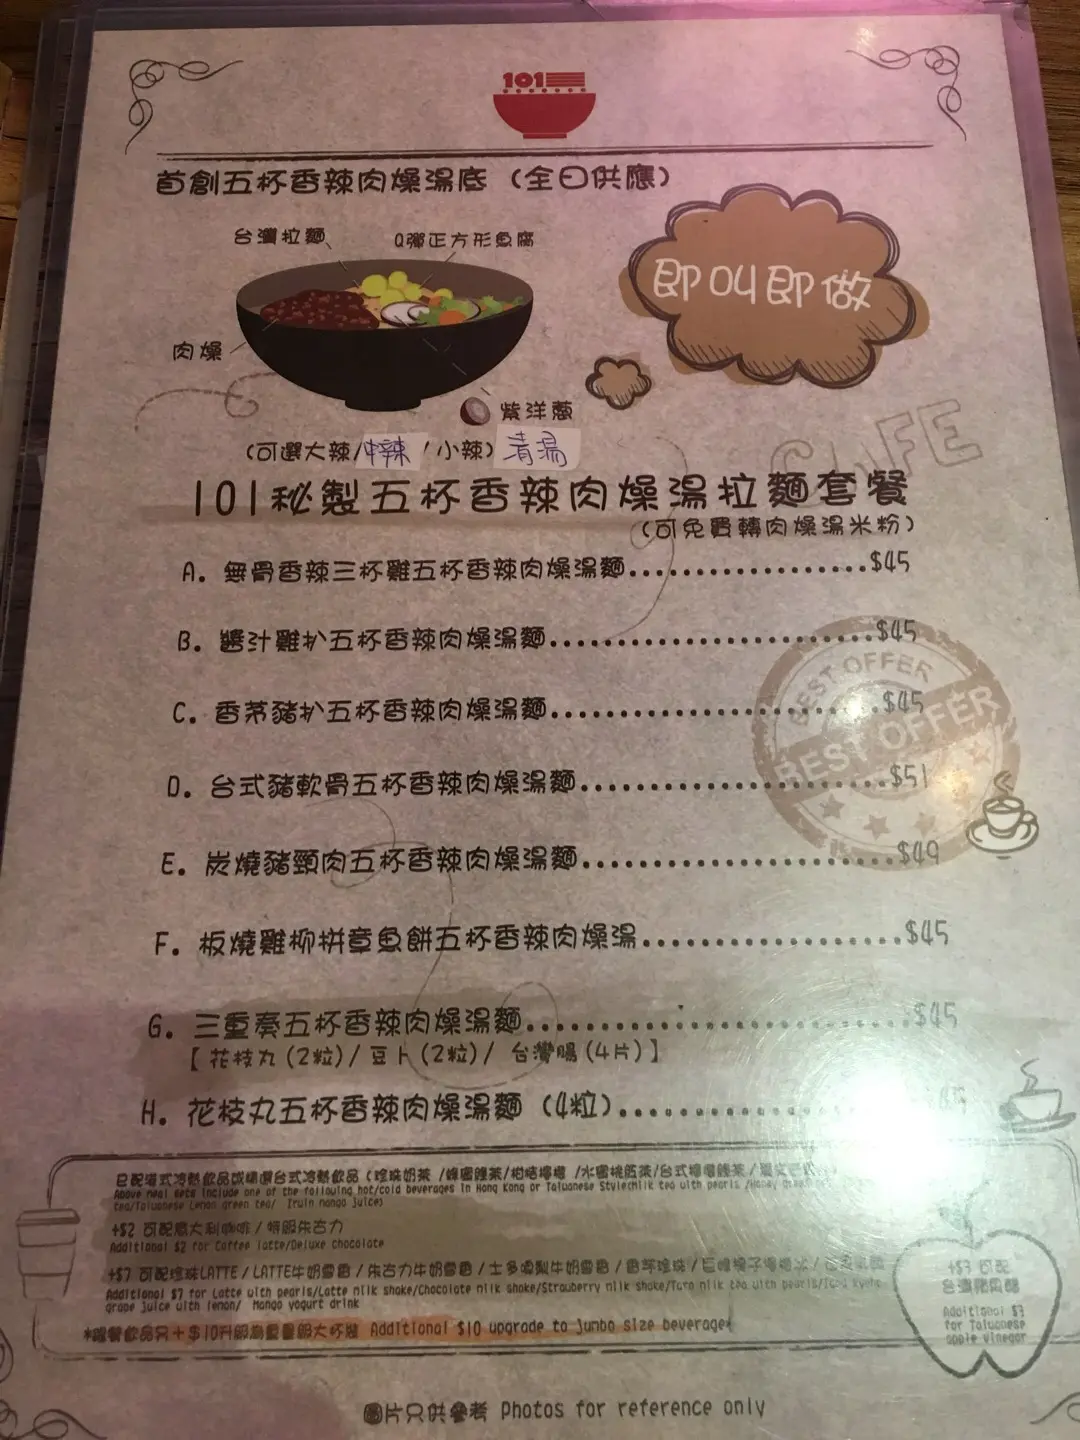 101
首創五杯香辣肉燥湯底（全日供應）
台灣拉麵
Q彈正方形魚腐
即叫即做
肉燥
紫洋蔥
(可選大辣/中辣/小辣) 清湯
CAFE
101秘製五杯香辣肉燥湯拉麵套餐
(可免費轉肉燥湯米粉)
A. 無骨香辣三杯雞五杯香辣肉燥湯麵..................$45
B. 醬汁雞扒五杯香辣肉燥湯麵........................$45
C. 香茅豬扒五杯香辣肉燥湯麵........................$45
BEST OFFER
BEST OFFER
D. 台式豬軟骨五杯香辣肉燥湯麵.......................$51
E. 炭燒豬頸肉五杯香辣肉燥湯麵.......................$49
F. 板燒雞柳拼章魚餅五杯香辣肉燥湯....................$45
G. 三重奏五杯香辣肉燥湯麵...........................$45
【花枝丸(2粒)/ 豆卜(2粒)/ 台灣腸(4片)】
H. 花枝丸五杯香辣肉燥湯麵（4粒）....................
已配港式冷熱飲品或精選台式冷熱飲品 (珍珠奶茶 /蜂蜜綠茶/柑桔檸檬 /水蜜桃紅茶/台式檸檬綠茶/
Above meal sets include one of the following hot/cold beverages in Hong Kong or Taiwanese Style(milk tea with pearls /Honey green
tea/Taiwanese Lemon green tea/
+$2 可配意大利咖啡/特級朱古力
Additional $2 for Coffee latte/Deluxe chocolate
+$7 可配珍珠LATTE/LATTE牛奶雪昔/朱古力牛奶雪昔/士多啤梨牛奶雪昔/香芋珍珠/巨峰提子檸檬冰/
Additional $7 for Latte with pearls/Latte milk shake/Chocolate milk shake/Strawberry milk shake/Taro milk tea with pearls/
grape juice with lemon/ Mango yogurt drink
+$3 可配
台灣蘋果醋
Additional $3
for Taiwanese
apple vinegar
*跟餐飲品另+$10升級為重量級大杯裝 Additional $10 upgrade to jumbo size beverage
圖片只供參考 Photos for reference only